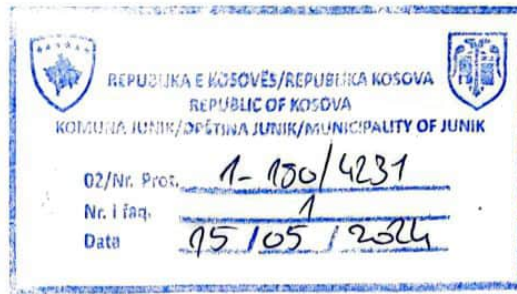 REPUBLIKA E KOSOVËS/REPUBLIKA KOSOVA
REPUBLIC OF KOSOVA
KOMUNA JUNIK/OPŠTINA JUNIK/MUNICIPALITY OF JUNIK
02/Nr. Prot. 1-180/4231
Nr. i faq. 1
Data 15/05/2024